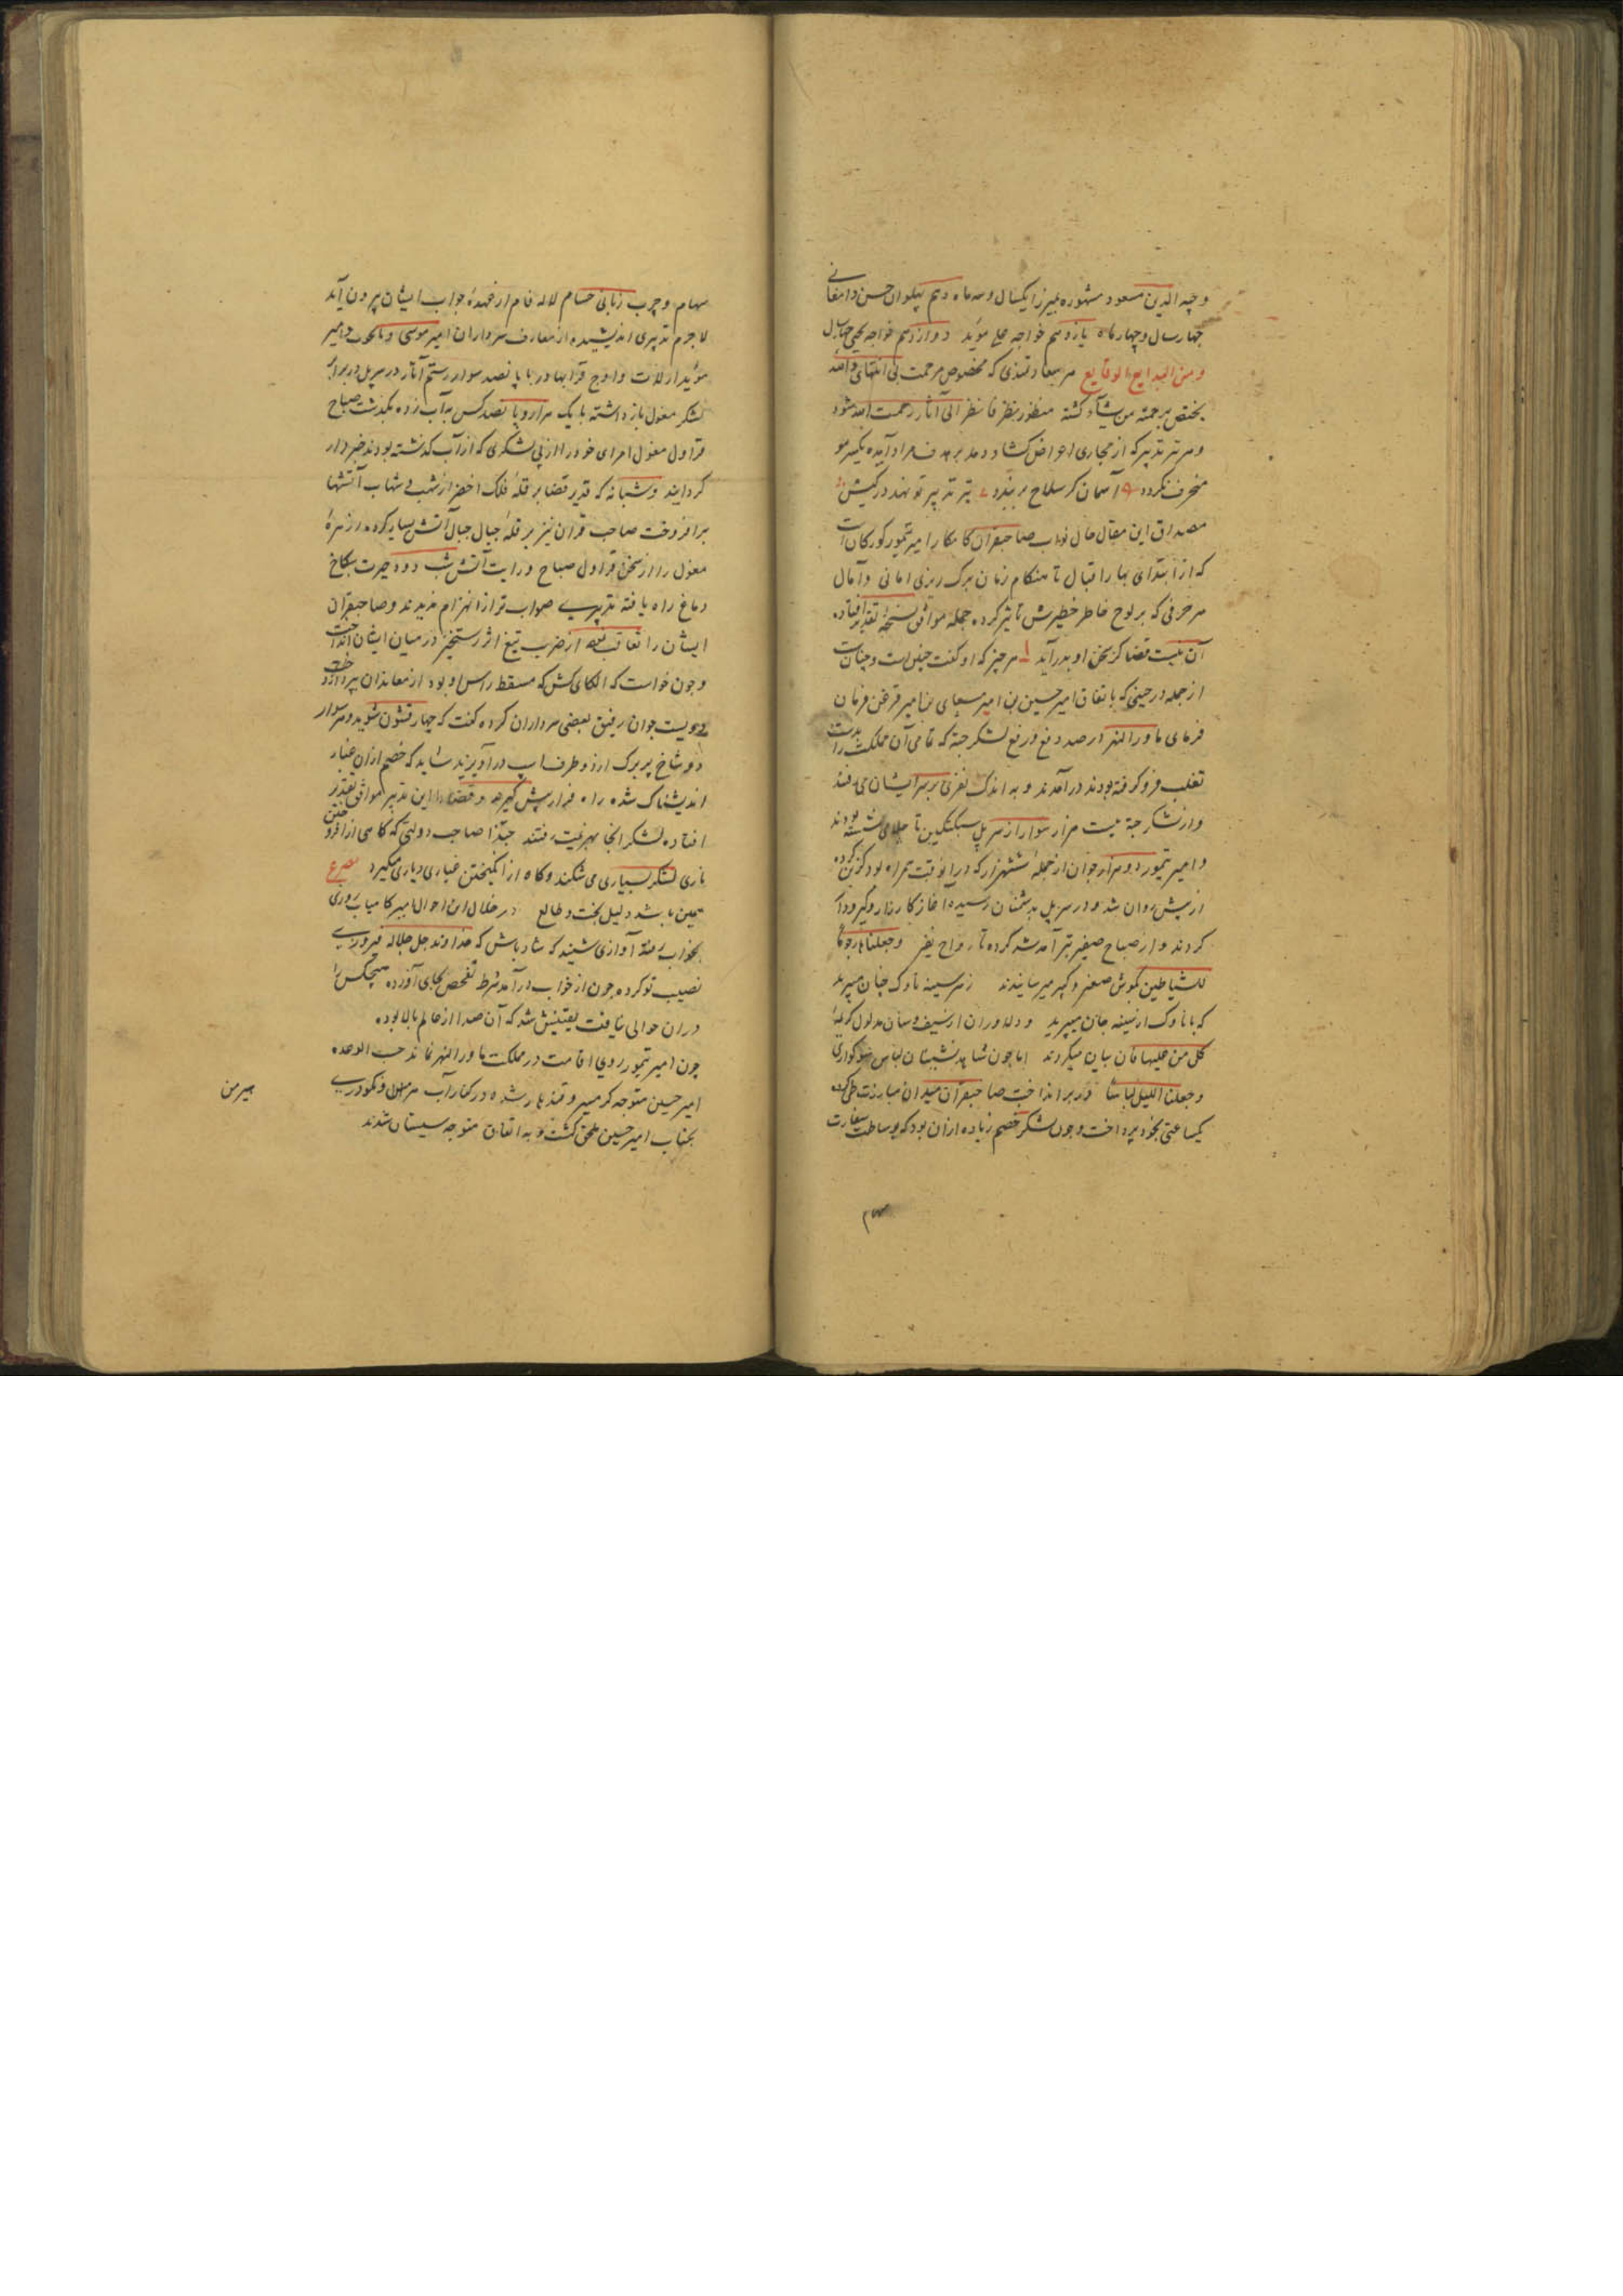 وجیه الدین مسعود مشهوره بمیرزا یکسال و سه ماه دهم پهلوان حسن دامغانی
چهار سال و چهار ماه یازدهم خواجه علی مؤید دوازدهم خواجه یحیی
و من البدایع الوقایع هر سعادتمندی که مخصوص مرحمت بی انتهای والله
یختص برحمته من یشآء کشته منظور نظر فانظر الی آثار رحمت الله شود
و هر تیر تدبیر که از مجاری اغراض کشاد دهد بر هدف مراد آید یکسر مو
منحرف نکردد آسمان کر سلاح بربندد تیر تدبیر تو نهد در کیش
مصداق این مقال حال نواب صاحبقران کامکار امیر تیمور کورکان است
که از ابتدای بهار اقبال تا هنکام زمان برک ریزی امانی و آمال
هر حرفی که بر لوح خاطر خطیرش تأثیر کرده جمله موافق نسخهٔ تقدیر افتاده
آن نیست قضا کز سخن او بدر آید هر چیز که او کفت چنین است و چنان است
از جمله در حینی که باتفاق امیر حسین بن امیر بن امیر قزغن فرمان
فرمای ماوراالنهر در صدد دفع و رفع لشکر جته که تمامی آن مملکت را بدست
تغلب فرو کرفته بودند درآمدند و به اندک نفری بر سر ایشان می رفتند
و از لشکر جته بیست هزار سوار از سر پل سنکین تا نشسته بودند
و امیر تیمور دو هزار جوان از جمله ششهزار که در آنوقت همراه بود کزین کرده
از پیش روان شد و در سر پل بدشمنان رسیده آغاز کارزار و کیرودار
کردند و از صباح صفیر تیر آمد شد کرده تا رواح نفیر وجعلناها رجوما
للشیاطین بکوش صغیر و کبیر میرسانیدند ز هر سینه ناوک چنان میپرید
که با ناوک از سینه جان میپرید و دلاوران از سیف و سنان مدلول کریمهٔ
کل من علیها فان بیان میکردند اما چون شاهد شبستان لباس سوکواری
وجعلنا اللیل لباسا در بر انداخت صاحبقران میدان مبارزت طی کرده
یکساعتی بخود پرداخت و چون لشکر خصم زیاده از آن بود که بوساطت سفارت
سهام
سهام و چرب زبانی حسام لاله فام از عهدهٔ جواب ایشان بیرون آید
لاجرم تدبیری اندیشیده از معارف سرداران امیر موسی و امیر
مؤید ارلات و اوج قرا بهادر با پانصد سوار رستم آثار در سر پل در برابر
لشکر مغول بازداشته با یک هزار و پانصد کس به آب زده بکذشت صباح
قراول مغول امرای خود را از پی لشکری که از آب کذشته بودند خبردار
کردانید و شبانه که قدیر قضا بر قلهٔ فلک اخضر از شهب و شهاب آتشها
برافروخت صاحب قران نیز بر قلهٔ جبال جبال آتش بسیار کرده زهرهٔ
مغول را از سخن قراول صباح و رایت آتش شب دود حیرت بکاخ
دماغ راه یافته تدبیری صواب تر از انهزام ندیدند و صاحبقران
ایشان را تعاقب نموده از ضرب تیغ اثر رستخیز در میان ایشان انداخت
و چون خواست که الکای کش که مسقط راس او بود از معاندان بپردازد
دویست جوان رفیق بعضی سرداران کرده کفت که چهار قشون شوید و هر سوار
دو شاخ پر برک از دو طرف اسب درآویزید شاید که خصم از آن غبار
اندیشناک شده راه فرار پیش کیرد و قضا را این تدبیر موافق تقدیر
افتاده لشکر انجا بهزیمت رفتند حبذا صاحب دولتی که کاهی از افروختن
ناری لشکر بسیاری می شکند و کاه از انکیختن غباری دیاری میکیرد مصرع
همین باشد دلیل بخت و طالع در خلال این احوال امیر کامیاب روزی
بخواب رفته آوازی شنید که شاد باش که خداوند جل جلاله فیروزی
نصیب تو کرده چون از خواب درآمد شرط تفحص بجای آورده هیچکس را
دران حوالی نیافت یقینش شد که آن صدا از عالم بالا بوده
چون امیر تیمور روی اقامت در مملکت ماوراالنهر نماند حسب الوعده
امیر حسین متوجه کرمسیر و قندهار شده در کنار آب هرمن و نکودری
بجناب امیر حسین ملحق کشت و به اتفاق متوجه سیستان شدند
هیرمن